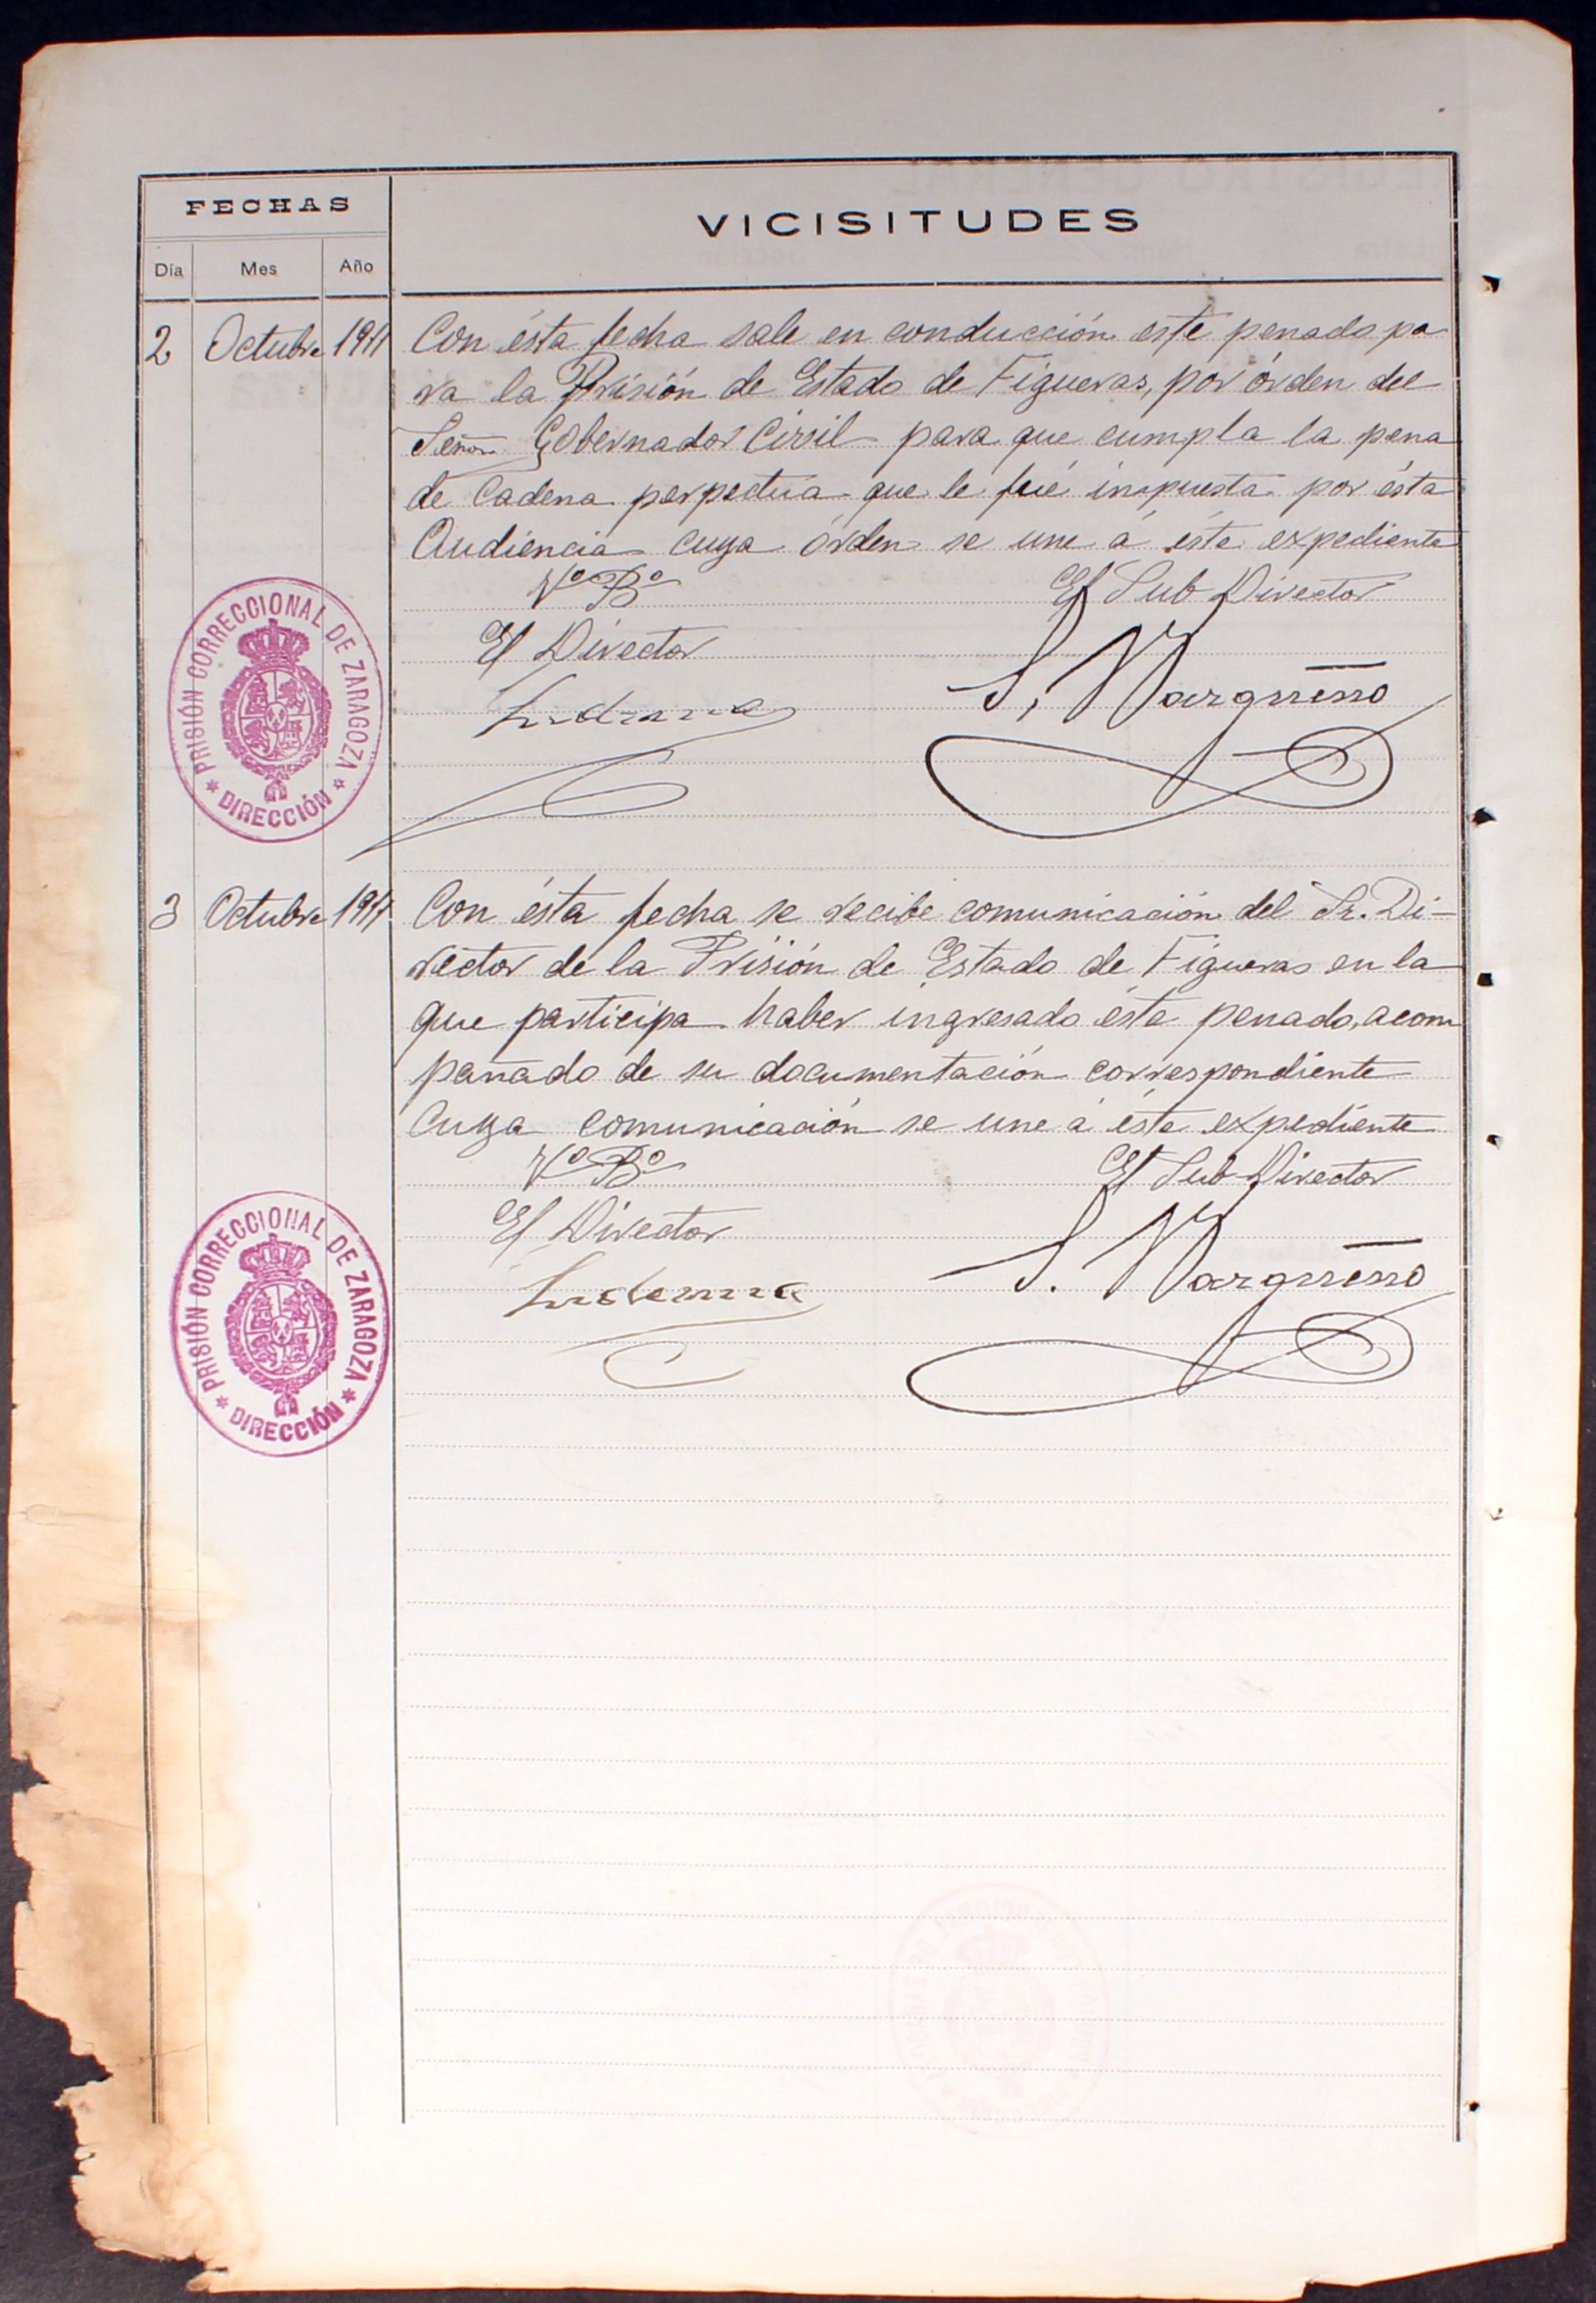 FECHAS
VICISITUDES
Día Mes Año
2 Octubre 1911 Con ésta fecha sale en conducción este penado pa
ra la Prisión de Estado de Figueras, por órden del
Señor Gobernador Civil para que cumpla la pena
de Cadena perpetua que le fué impuesta por ésta
Audiencia cuya órden se une á éste expediente
Vº Bº El Sub Director
El Director
S.
PRISIÓN CORRECCIONAL DE ZARAGOZA
* DIRECCIÓN *
3 Octubre 1911 Con ésta fecha se recibe comunicación del Sr. Di-
rector de la Prisión de Estado de Figueras en la
que participa haber ingresado éste penado, acom
pañado de su documentación correspondiente
Cuya comunicación se une á éste expediente
Vº Bº El Sub-Director
El Director
S.
PRISIÓN CORRECCIONAL DE ZARAGOZA
* DIRECCIÓN *